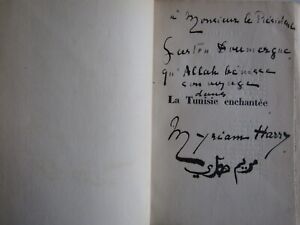 à Monsieur le Président
Gaston Doumergue
qu'Allah bénisse
son voyage
dans
La Tunisie enchantée
Myriam Harry
مريم هاري